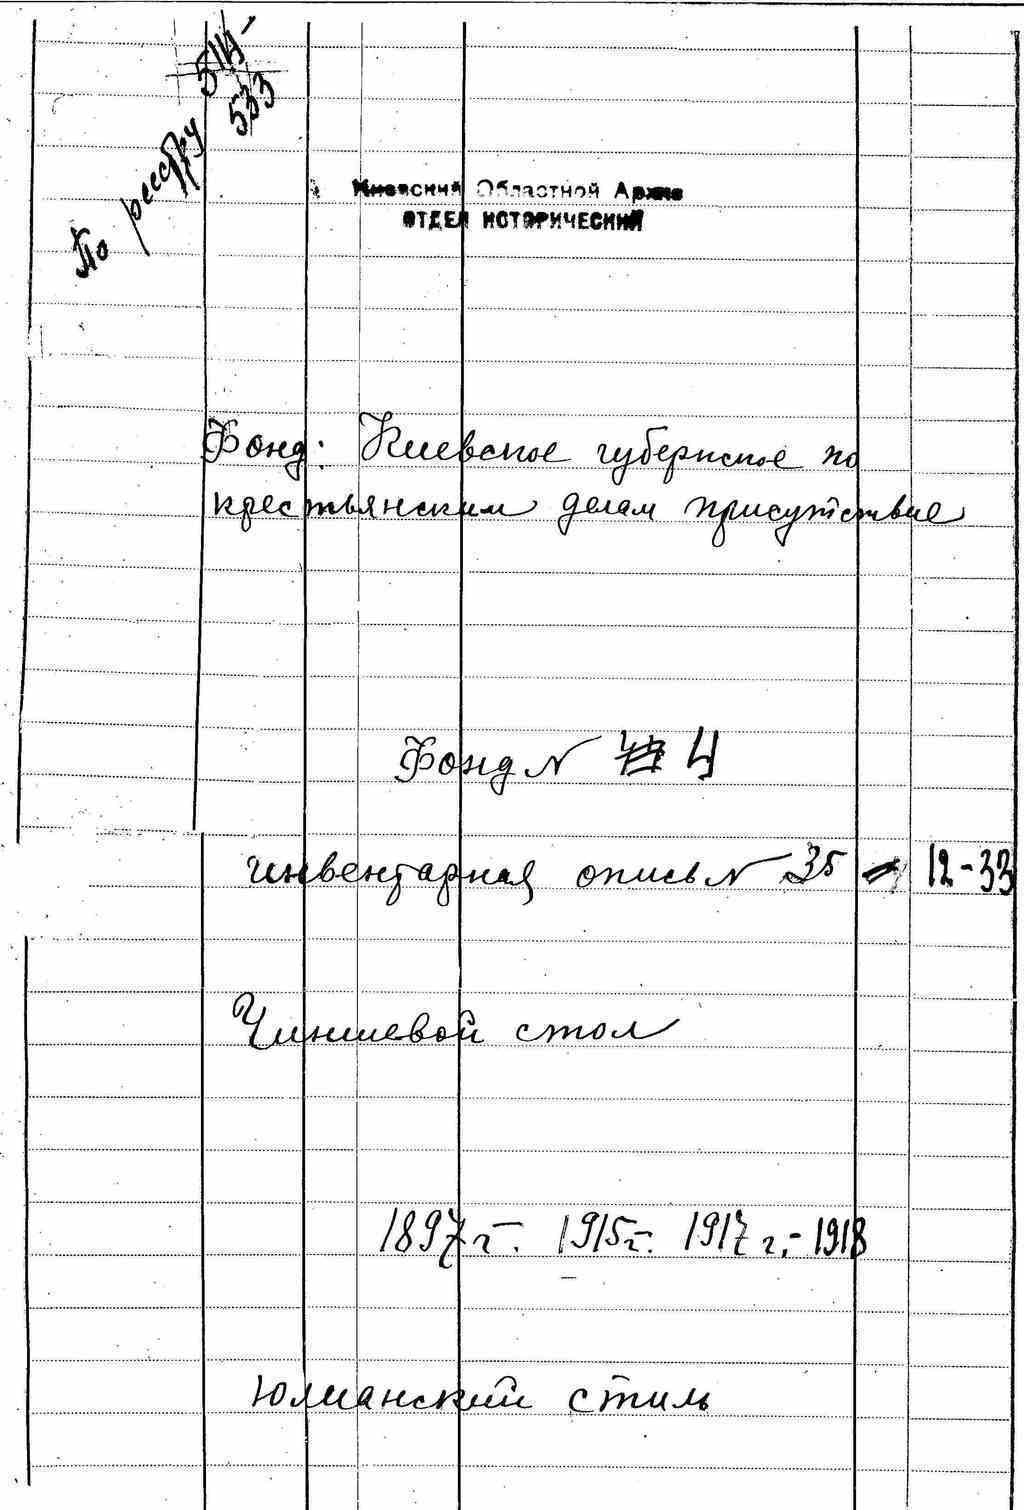 По реестру 514-
533
Киевский Областной Архив
ОТДЕЛ ИСТОРИЧЕСКИЙ
Фонд: Киевское губернское по
крестьянским делам присутствие
Фонд N 4
инвентарная опись N 35 12-33
Чиншевой стол
1897 г. 1915 г. 1917 г.- 1918
Юлианский стиль